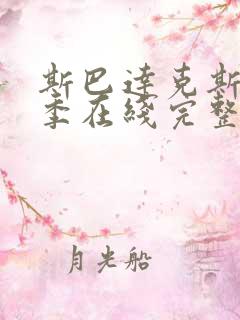 斯巴达克斯
季在线完整
月光船